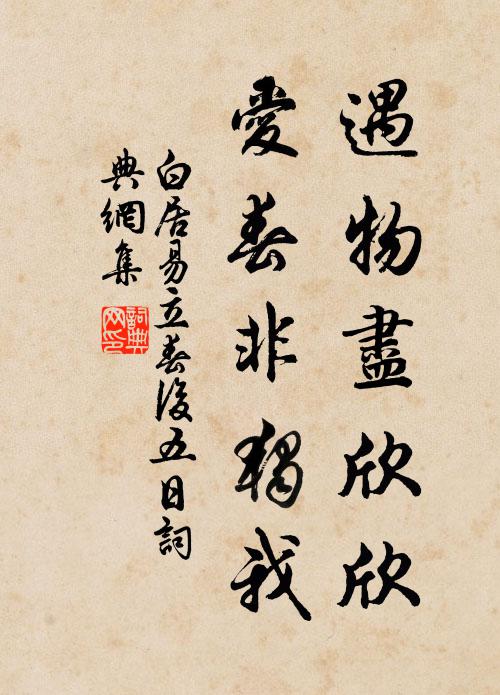 遇物盡欣欣
愛春非獨我
白居易立春後五日詞
典網集
詞典
网印